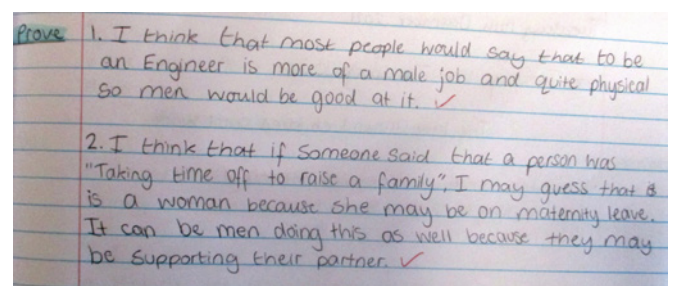 Prove 1. I think that most people would say that to be
an Engineer is more of a male job and quite physical
so men would be good at it.
2. I think that if someone said that a person was
"Taking time off to raise a family". I may guess that
is a woman because she may be on maternity leave.
It can be men doing this as well because they may
be supporting their partner.